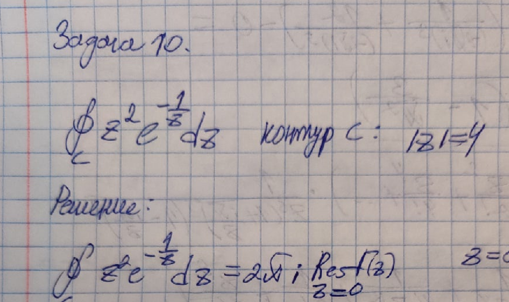 Задача 10.
∮_C z² e^{-1/z} dz контур C: |z|=4
Решение:
∮ z² e^{-1/z} dz = 2πi Res f(z) z=0 z=0